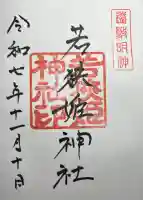 若狭姫神社
若狭姫
神社印
令和七年十一月十日